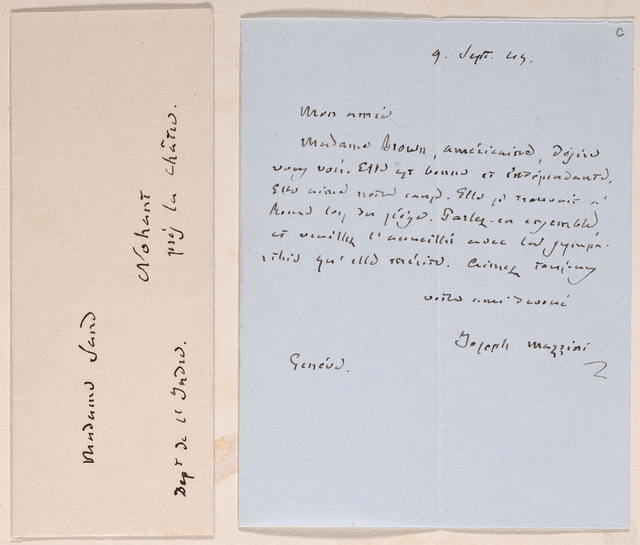 Madame Sand
Nohant
près la Châtre.
Dept de l'Indre.
C
9. Sept. 49.
Mon amie
Madame Brown, américaine, désire
vous voir. Elle est bonne et indépendante.
Elle aime notre cause. Elle se trouvait à
Rome lors du siège. Parlez-en ensemble
et veuillez l'accueillir avec la sympa-
thie qu'elle mérite. Aimez toujours
votre ami dévoué
Joseph Mazzini
Genève.